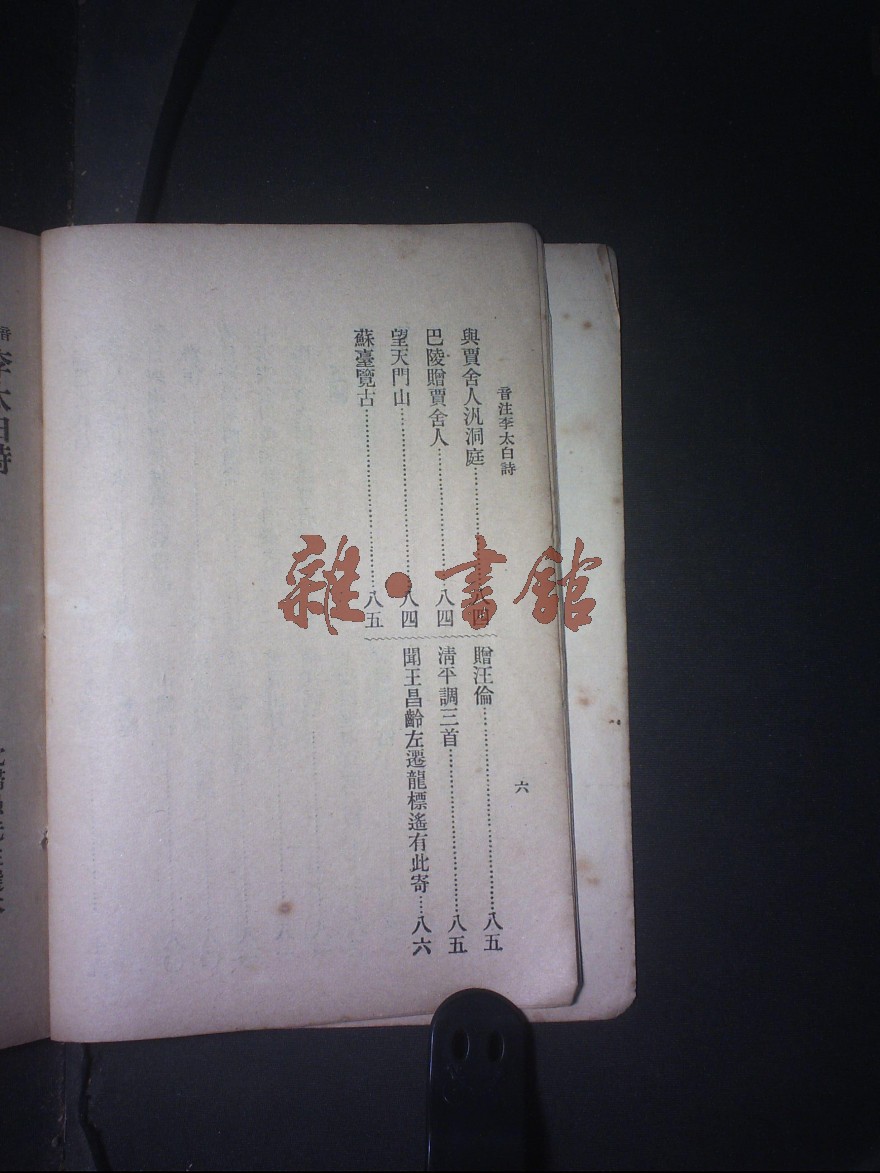 音注李太白詩
六
與賈舍人汎洞庭……八四
巴陵贈賈舍人……八四
望天門山……八四
蘇臺覽古……八五
贈汪倫……八五
淸平調三首……八五
聞王昌齡左遷龍標遙有此寄……八六
雜·書館
音
李太白詩